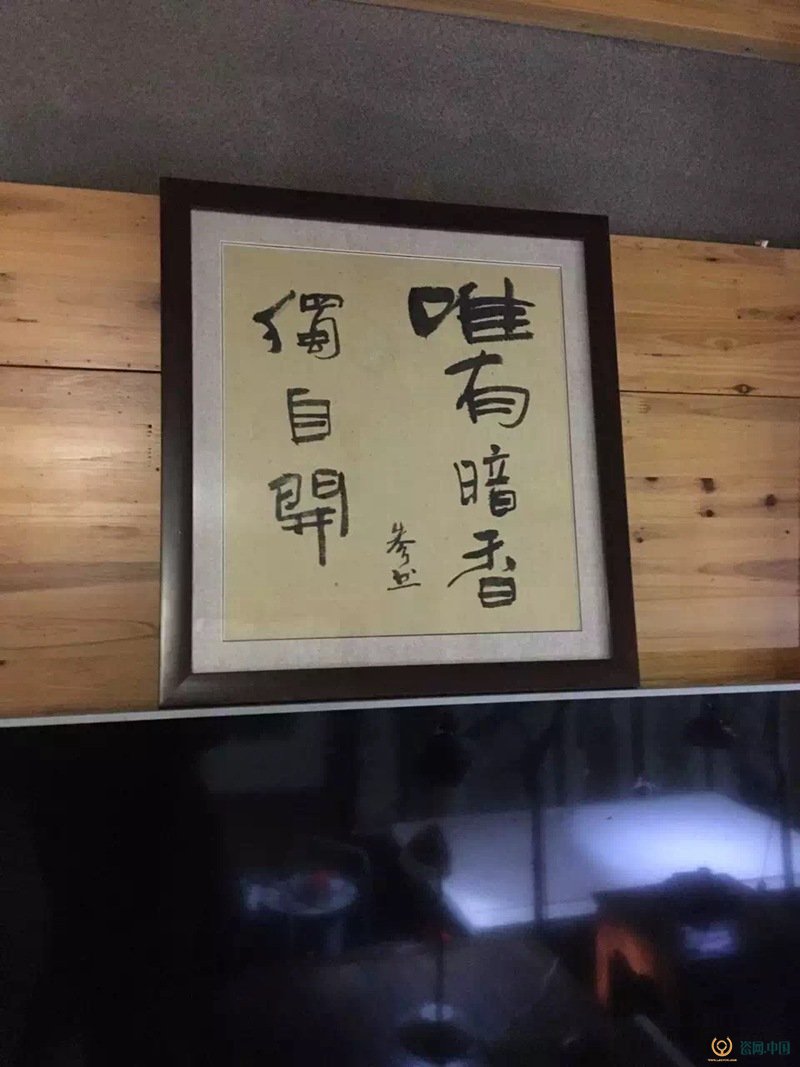 唯有暗香
獨自開
瓷网.中国